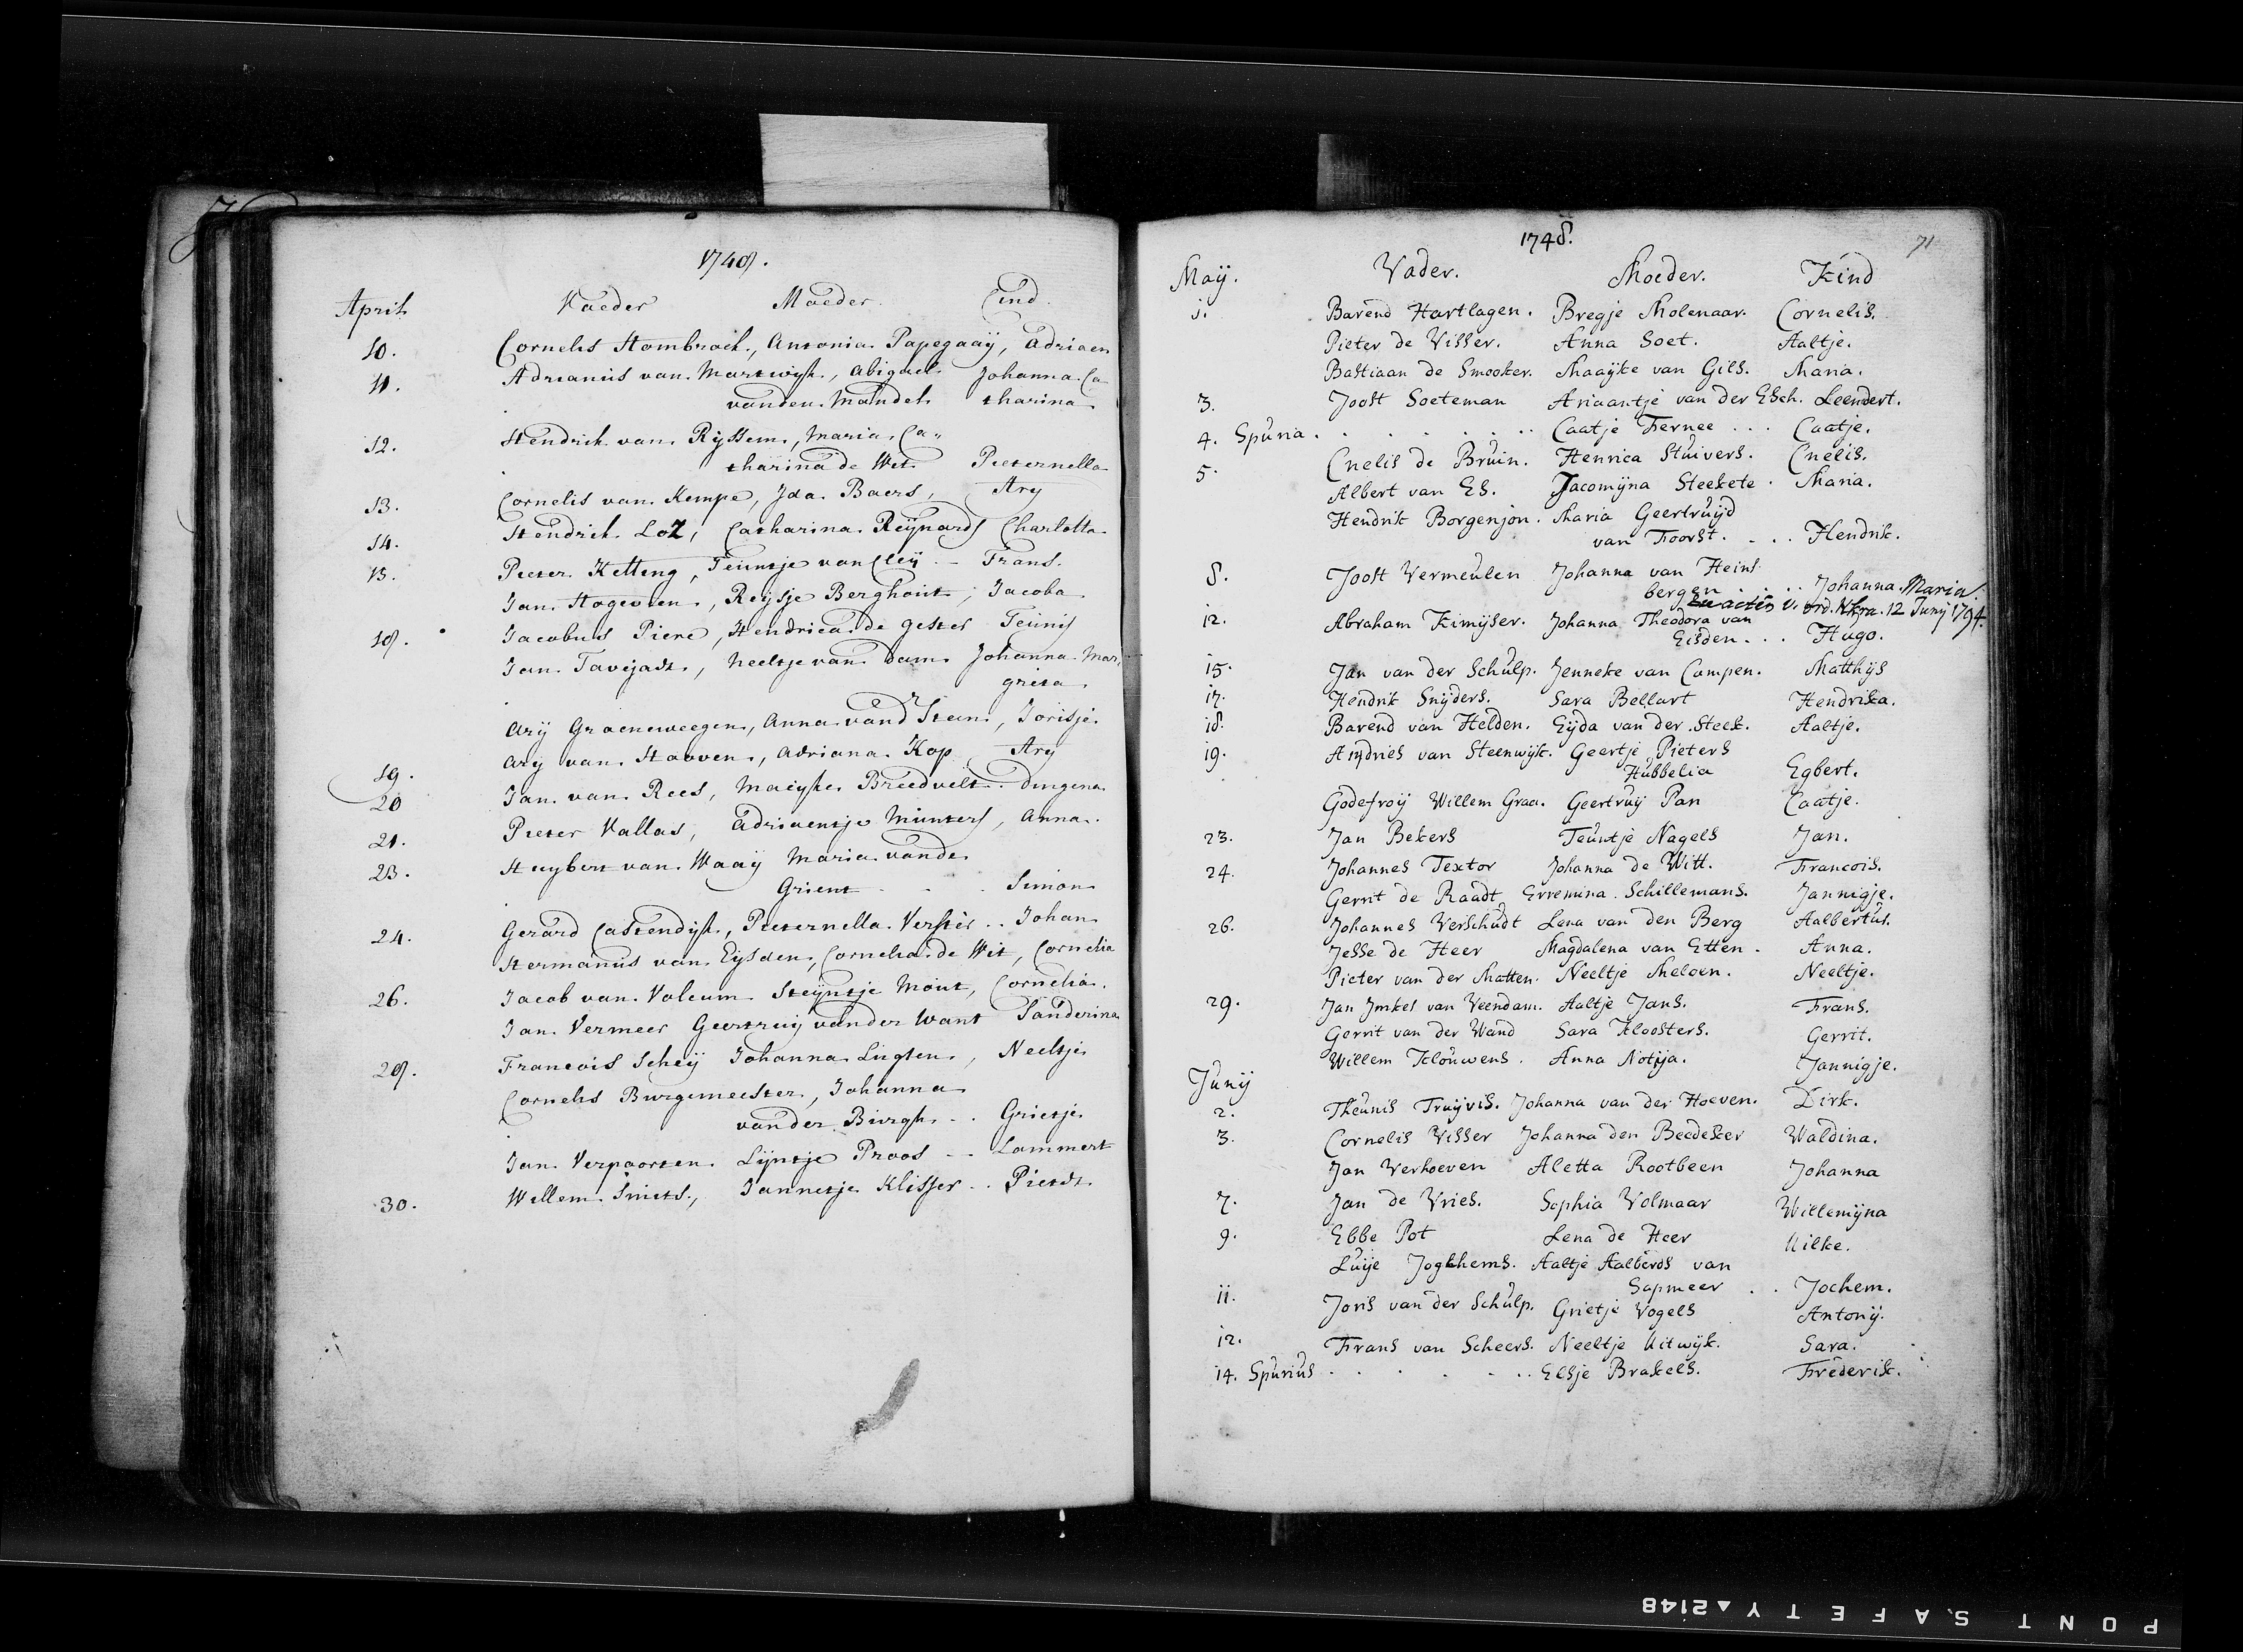 1748.
April Vaeder Moeder Cind
10. Cornelis Hombroek, Antonia Papegaaÿ, Adriaen
11. Adrianus van Martwijk, Abigael Johanna Ca-
vanden Mandel tharina
12. Hendrik van Rijssem, Maria Ca-
tharina de Wet Pieternella
13. Cornelis van Kempe, Ida Baers, Ary
14. Hendrik Lotz, Catharina Reÿnards Charlotta
15. Pieter Ketting, Teuntje van Cleÿ - Frans.
Jan Hogeveen, Reijsje Berghout, Jacoba
18. Jacobus Piere, Hendrica de Gester Teunis
Jan Taveÿadt, Neeltje van Dam Johanna Mar,
grita
Arÿ Groeneweegen, Anna vand Steen, Jorisje
Ary van Hooven, Adriana Kop, Ary
19.
20 Jan van Rees, Maeyke Breedvelt Dingena
21. Pieter Vallas, Adriaentje Munters, Anna.
23. Huybert van Waaÿ Maria vande
Grient - - Simon
24. Gerard Castendijk, Pieternella Versteÿ .. Johan
Hermanus van Eijsden, Cornelia de Wit, Cornelia
26. Jacob van Voleum Steÿntje Mout, Cornelia.
Jan Vermeer Geertruij vander Want Sanderina
28. Francois Scheÿ Johanna Lugten, Neeltje
Cornelis Burgemeester, Johanna
vander Burgh - . Grietje
Jan Verpoorten Lijntje Proos -- Lammert
30. Willem Smets, Jannetje Klisser .. Pieter
1748. 71
Maÿ. Vader. Moeder. Kind
1. Barend Hartlagen. Bregje Molenaar. Cornelis.
Pieter de Visser. Anna Soet. Aaltje.
Bastiaan de Smooker. Maaÿke van Gils. Maria.
3. Joost Soeteman Ariaantje van der Esch. Leendert.
4. Spuria . . . . . . . Caatje Fernee ... Caatje.
5. Cnelis de Bruin. Henrica Stuivers. Cnelis.
Albert van Es. Jacomijna Steekete. Maria.
Hendrik Borgenjon. Maria Geertruÿd
van Foorst. . . . Hendrik.
8. Joost Vermeulen Johanna van Heins
bergen . . . . Johanna Maria.
Ex actis v. ord. 12 Junij 1794.
12. Abraham Kimijser. Johanna Theodora van
Eisden. . . Hugo.
15. Jan van der Schulp. Jenneke van Campen. Matthijs
17. Hendrik Snijders. Sara Bellart Hendrika.
18. Barend van Helden. Eijda van der Steek. Aaltje.
19. Andries van Steenwijk. Geertje Pieters
Hubbelia Egbert.
Godefroij Willem Graa. Geertruij Pan Caatje.
23. Jan Bekers Teuntje Nagels Jan.
24. Johannes Textor Johanna de Witt. Francois.
Gerrit de Raadt Erremina Schillemans. Jannigje.
26. Johannes Verschudt Lena van den Berg Aalbertus.
Jesse de Heer Magdalena van Etten. Anna.
Pieter van der Matten. Neeltje Meloen. Neeltje.
29. Jan Jmkes van Veendam. Aaltje Jans. Frans.
Gerrit van der Wand Sara Kloosters. Gerrit.
Willem Klouwens. Anna Notija. Jannigje.
Junij
2. Theunis Truijvis. Johanna van der Hoeven. Dirk.
3. Cornelis Visser Johanna den Beedeker Waldina.
Jan Verhoeven Aletta Rootbeen Johanna
7. Jan de Vries. Sophia Volmaar Willemijna
9. Ebbe Pot Lena de Heer Uilke.
Luije Jogchems. Aaltje Aalberds van
Sapmeer . . Jochem.
11. Joris van der Schulp. Grietje Vogels Antonij.
12. Frans van Scheers. Neeltje Uitwijk. Sara.
14. Spurius . . . . . . . Elsje Brakels. Frederik.
PONT SAFETY▲2148